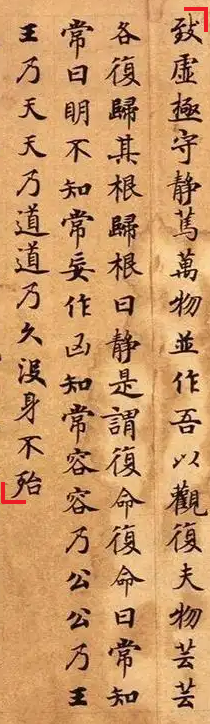 致虛極守静篤萬物並作吾以觀復夫物芸芸
各復歸其根歸根曰静是謂復命復命曰常知
常曰明不知常妄作凶知常容容乃公公乃王
王乃天天乃道道乃久没身不殆